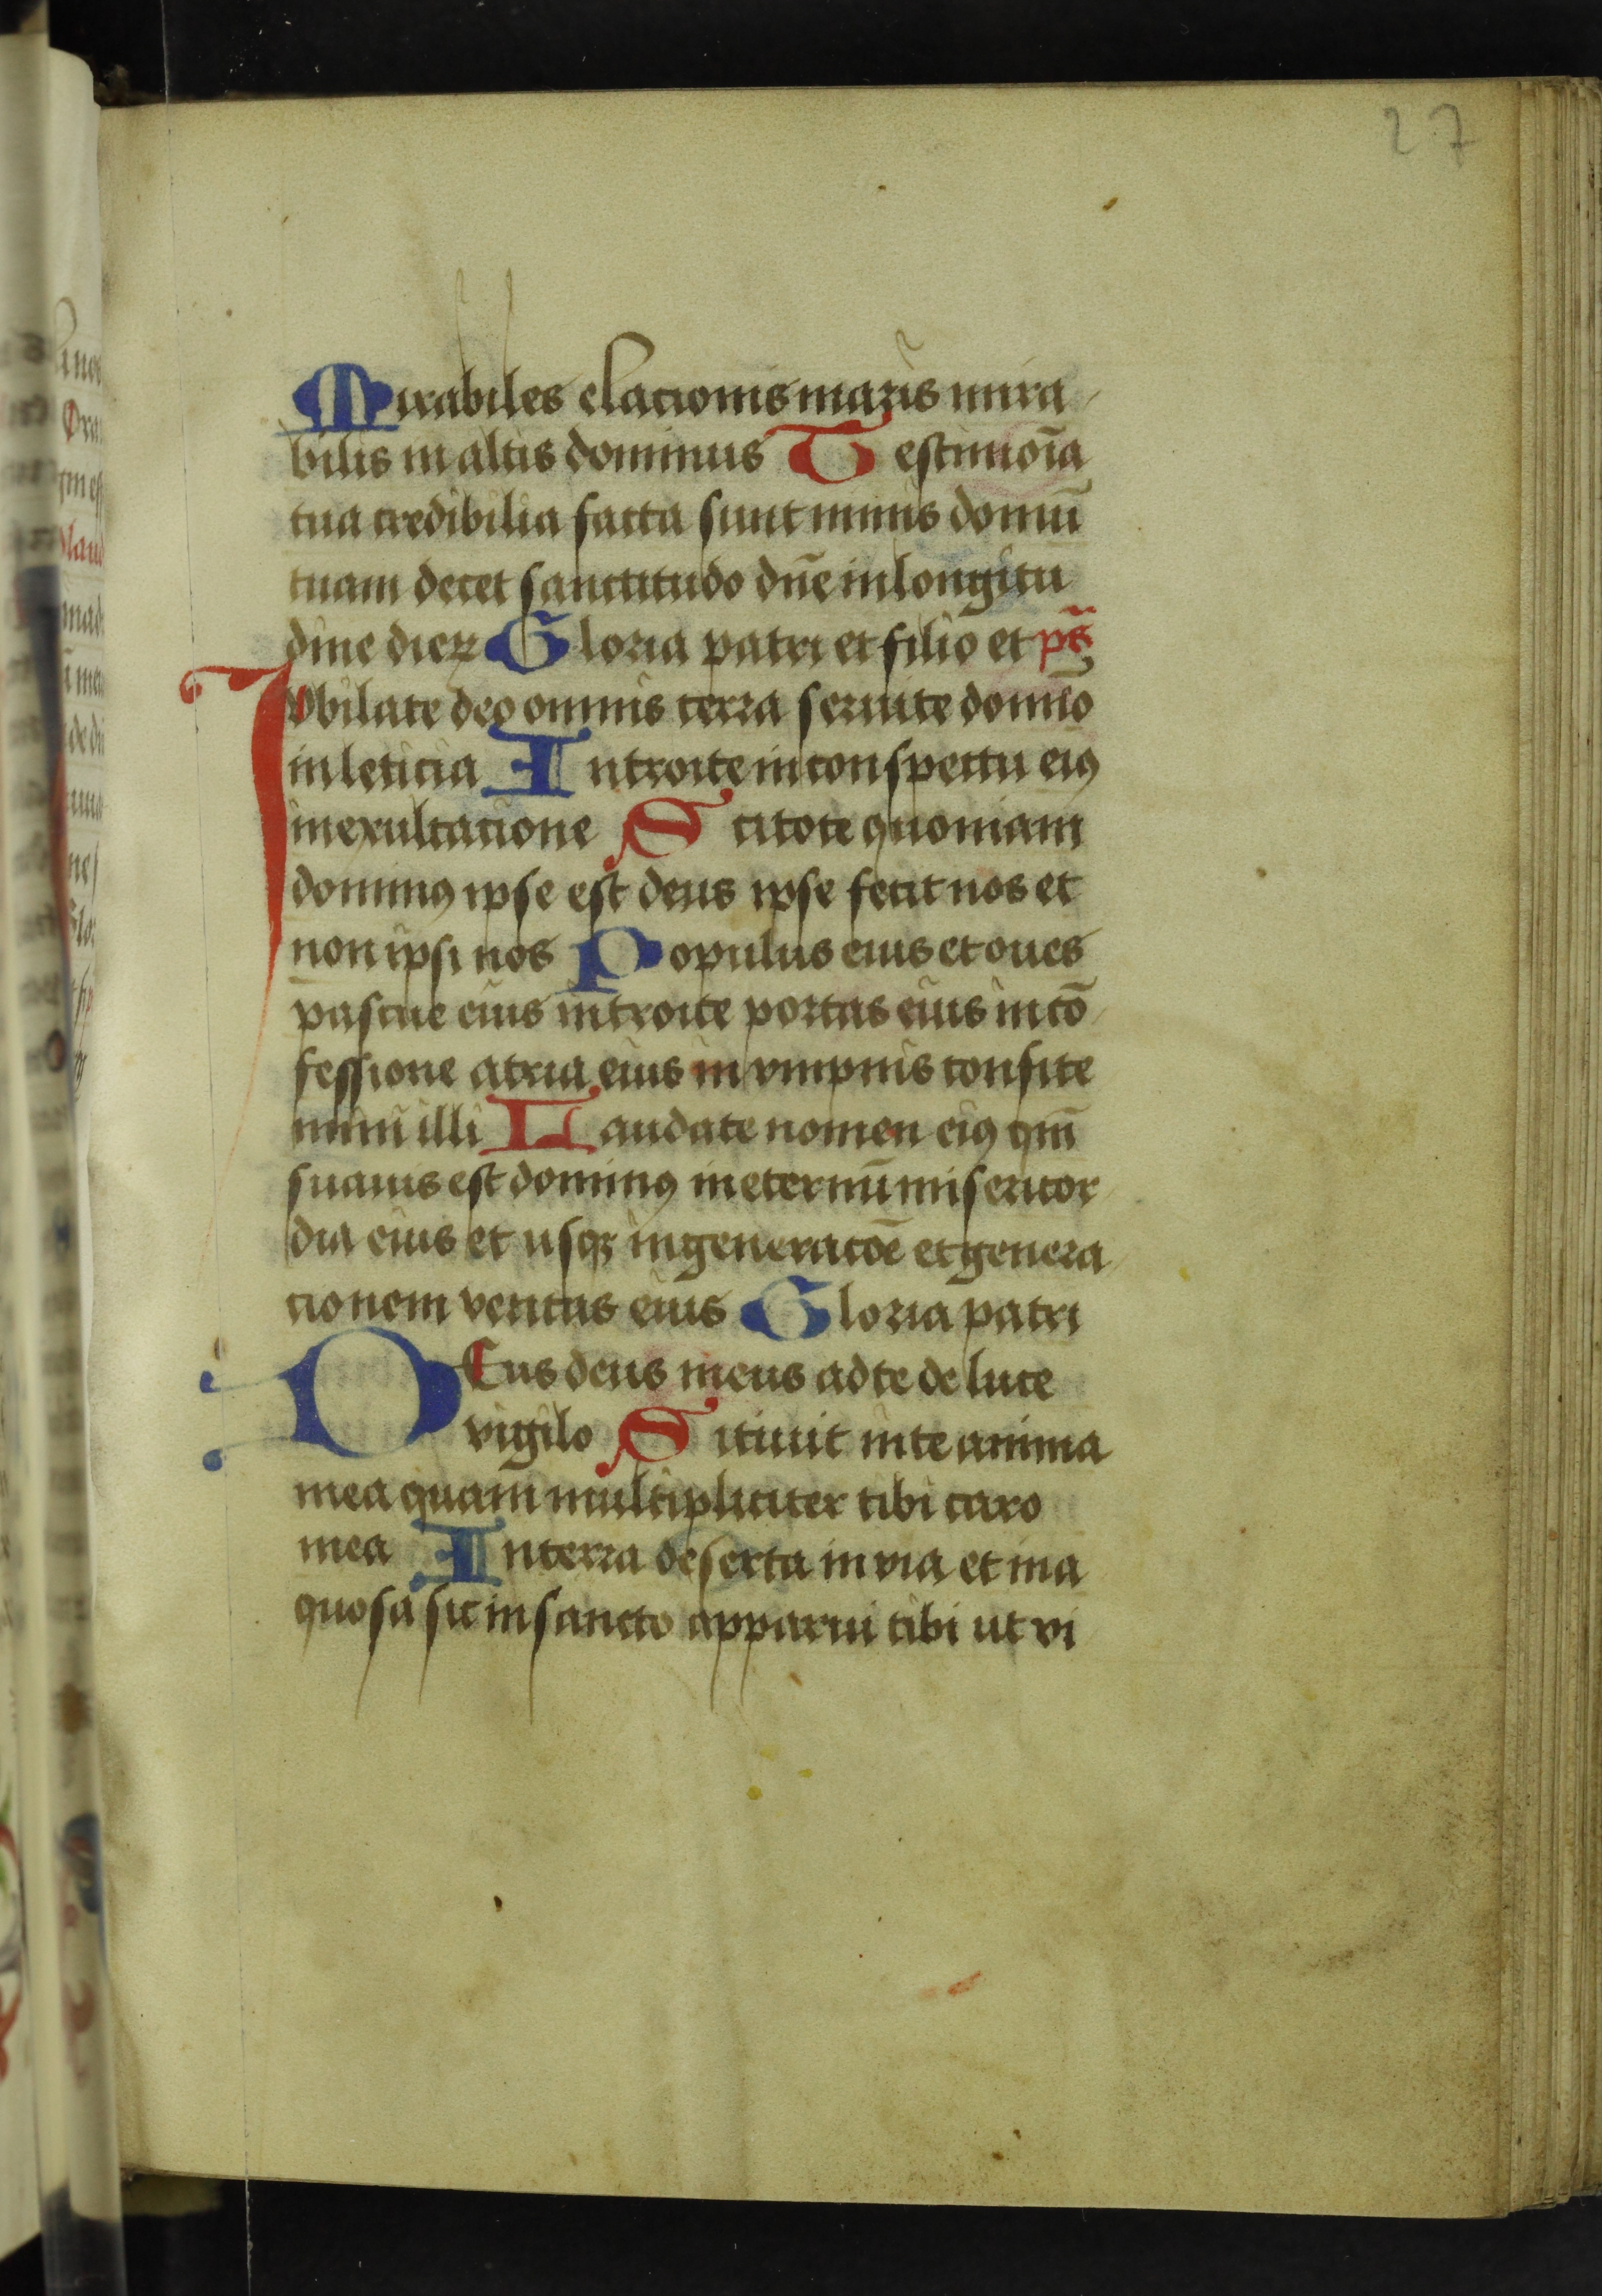 27
Mirabiles elacionis maris mira
bilis in altis dominus Testimoīa
tua credibilia facta sunt nimis domū
tuam decet sanctitudo dn̄e in longitu
dine dierꝝ Gloria patri et filio et pš
Jvbilate deo omnis terra seruite domīo
in leticia Introite in conspectu eiꝰ
in exultacione Scitote quoniam
dominꝰ ipse est deus ipse fecit nos et
non ipsi nos Populus eius et oues
pascue eius introite portas eius in cō
fessione atria eius in ympnis confite
mini illi Laudate nomen eiꝰ qm̄
suauis est dominꝰ in eternū misericor
dia eius et usqꝫ in generacōe et genera
cionem veritas eius Gloria patri
DEus deus meus ad te de luce
vigilo Sitiuit in te anima
mea quam multipliciter tibi caro
mea In terra deserta in via et ina
quosa sic in sancto apparui tibi ut vi